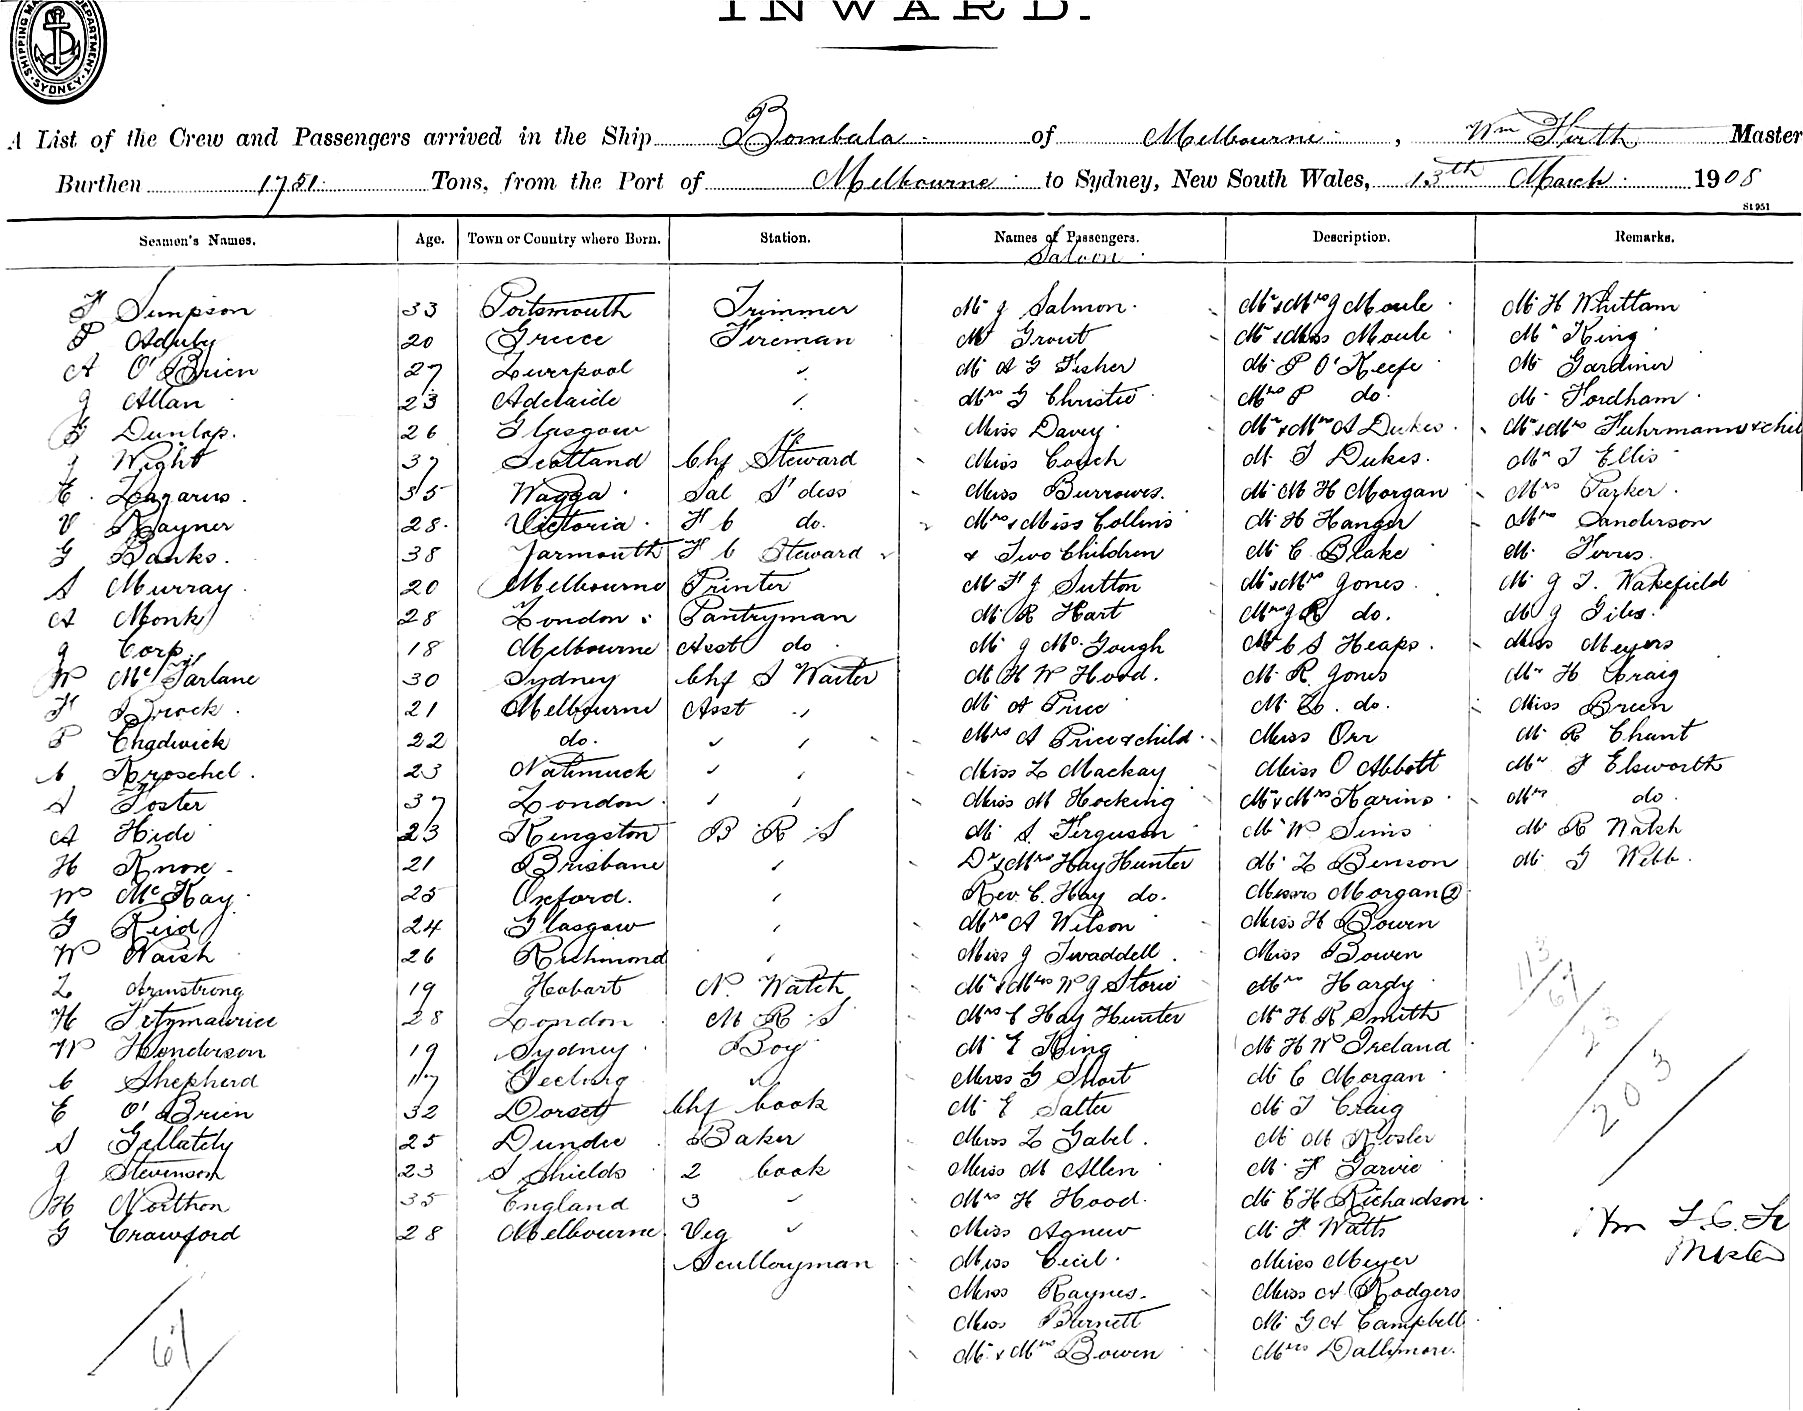 INWARD.
SHIPPING MASTER'S DEPARTMENT. SYDNEY
A List of the Crew and Passengers arrived in the Ship Bombala of Melbourne, Wm Firth Master
Burthen 1751 Tons, from the Port of Melbourne to Sydney, New South Wales, 13th March 1908
St 951
Seamen's Names. Age. Town or Country where Born. Station. Names of Passengers. Description. Remarks.
Saloon
F Simpson 33 Portsmouth Trimmer Mr J Salmon Mr & Mrs J Moule Mr H Whittam
P 20 Greece Fireman Mr Grout Mr & Miss Moule Mr King
A O'Brien 27 Liverpool " Mr A G Fisher Mr P O'Keefe Mr Gardiner
J Allan 23 Adelaide " Mrs G Christie Mrs P do. Mr Fordham
G Dunlop. 26 Glasgow " Miss Davey Mr & Mrs A Dukes Mr & Mrs Fuhrmann & chil
J Wight 37 Scotland Chf Steward Miss Couch Mr T Dukes. Mr T Ellis
E. Lazarus. 35 Wagga Sal S'dess Miss Burrowes. Mr M H Morgan Mrs Parker
V Rayner 28 Victoria F C do. Mrs & Miss Collins Mr H Hanger Mrs Sanderson
G Banks. 38 Yarmouth F C Steward & Two Children Mr C Blake Mr
A Murray 20 Melbourne Printer Mr F J Sutton Mr & Mrs Jones Mr J T. Wakefield
A Monk 28 London Pantryman Mr R Hart Mrs J R do. Mr J Giles
J Corp. 18 Melbourne Asst do Mr J McGough Mr C S Heaps. Miss Meyers
W McFarlane 30 Sydney Chf S Waiter Mr H W Hood. Mr R Jones Mr H Craig
F Brock 21 Melbourne Asst " Mr A Price Mr L. do. Miss Breen
P Chadwick 22 do. " " Mrs A Price & child Miss Orr Mr R Chant
C Kroschel. 23 Natimuck " " Miss L Mackay Miss O Abbott Mr F Elsworth
S Foster 37 London " " Miss M Hocking Mr & Mrs Karins Mrs do.
A Hide 23 Kingston B R S Mr S. Ferguson Mr W Sims Mr R Walsh
H Knox 21 Brisbane " Dr & Mrs Hay Hunter Mr L Benson Mr G Webb.
W McKay 25 Oxford. " Rev. C. Hay do. Messrs Morgan (2)
G Reid 24 Glasgow " Mrs A Wilson Miss H Bowen
W Walsh 26 Richmond " Miss J Twaddell. Miss Bowen
L Armstrong 19 Hobart N. Watch Mr & Mrs W J Storie Mrs Hardy
H Fitzmaurice 28 London M R S Mrs C Hay Hunter Mr H R Smith
W Henderson 19 Sydney Boy Mr E King Mr H W Ireland
C Shepherd 17 Geelong " Miss G Short Mr C Morgan
E O'Brien 32 Dorset Chf Cook Mr E Salter Mr T Craig
S Gellately 25 Dundee Baker Miss L Gabel. Mr M Kosler
J Stevenson 23 S Shields 2 Cook Miss M Allen Mr F Garvie
H Northon 35 England 3 " Mrs H Hood. Mr C H Richardson
G Crawford 28 Melbourne Veg " Miss Agnew Mr F Watts
Sculleryman Miss Cecil. Miss Meyer
Miss Raynes. Miss A Rodgers
Miss Burnett Mr G A Campbell
Mr & Mrs Bowen Mrs Dallimore.
113
61
203
61
Master